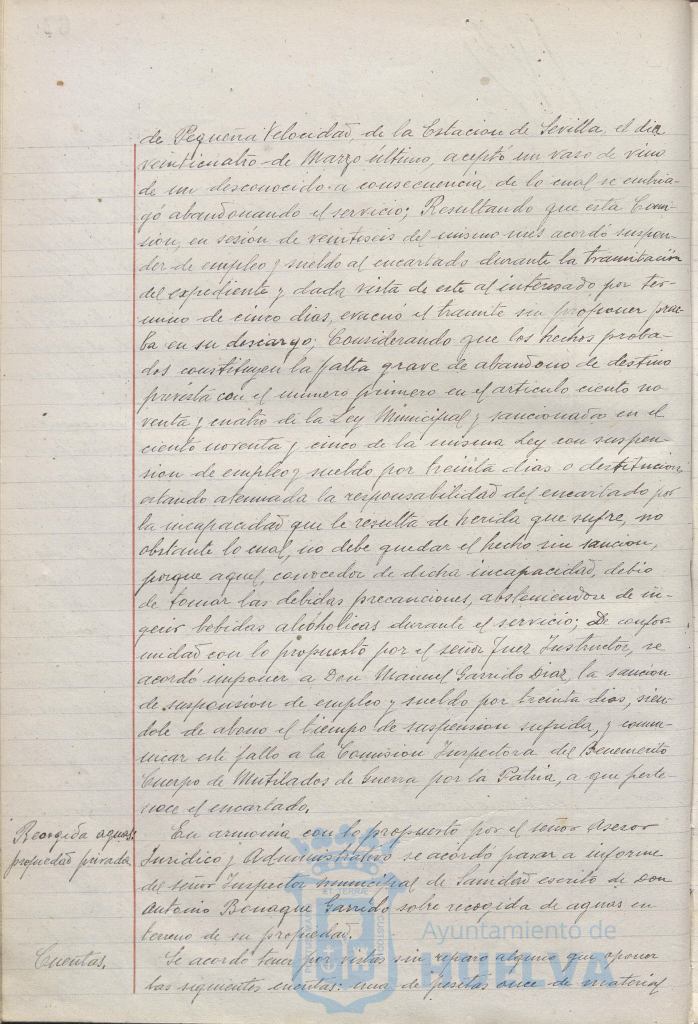 de Pequeña Velocidad, de la Estacion de Sevilla, el dia
veinticuatro de Marzo último, aceptó un vaso de vino
de un desconocido a consecuencia de lo cual se embria-
gó abandonando el servicio; Resultando que esta Comi-
sion, en sesión de veintiseis del mismo mes acordó suspen-
der de empleo y sueldo al encartado durante la tramitación
del expediente y dada vista de este al interesado por ter-
mino de cinco dias, evacuó el tramite sin proponer prue-
ba en su descargo; Considerando que los hechos proba-
dos constituyen la falta grave de abandono de destino
prevista con el numero primero en el articulo ciento no
venta y cuatro de la Ley Municipal y sancionados en el
ciento noventa y cinco de la misma Ley con suspen-
sion de empleo y sueldo por treinta dias o destitucion
estando atenuada la responsabilidad del encartado por
la incapacidad que le resulta de herida que sufre, no
obstante lo cual, no debe quedar el hecho sin sancion,
porque aquel, conocedor de dicha incapacidad, debio
de tomar las debidas precauciones, absteniendose de in-
gerir bebidas alcohólicas durante el servicio; De confor-
midad con lo propuesto por el señor Juez Instructor, se
acordó imponer a Don Manuel Garrido Diaz, la sancion
de suspension de empleo y sueldo por treinta dias, sien-
dole de abono el tiempo de suspension sufrida, y comu-
nicar este fallo a la Comision Inspectora del Benemerito
Cuerpo de Mutilados de Guerra por la Patria, a que perte-
nece el encartado.
Recogida aguas
propiedad privada
En armonia con lo propuesto por el señor Asesor
Juridico y Administrativo se acordó pasar a informe
del señor Inspector municipal de Sanidad escrito de Don
Antonio Bonaque Garrido sobre recogida de aguas en
terreno de su propiedad.
Cuentas.
Se acordó tener por vistas sin reparo alguno que oponer
las siguientes cuentas: una de pesetas once de material
Ayuntamiento de
HUELVA